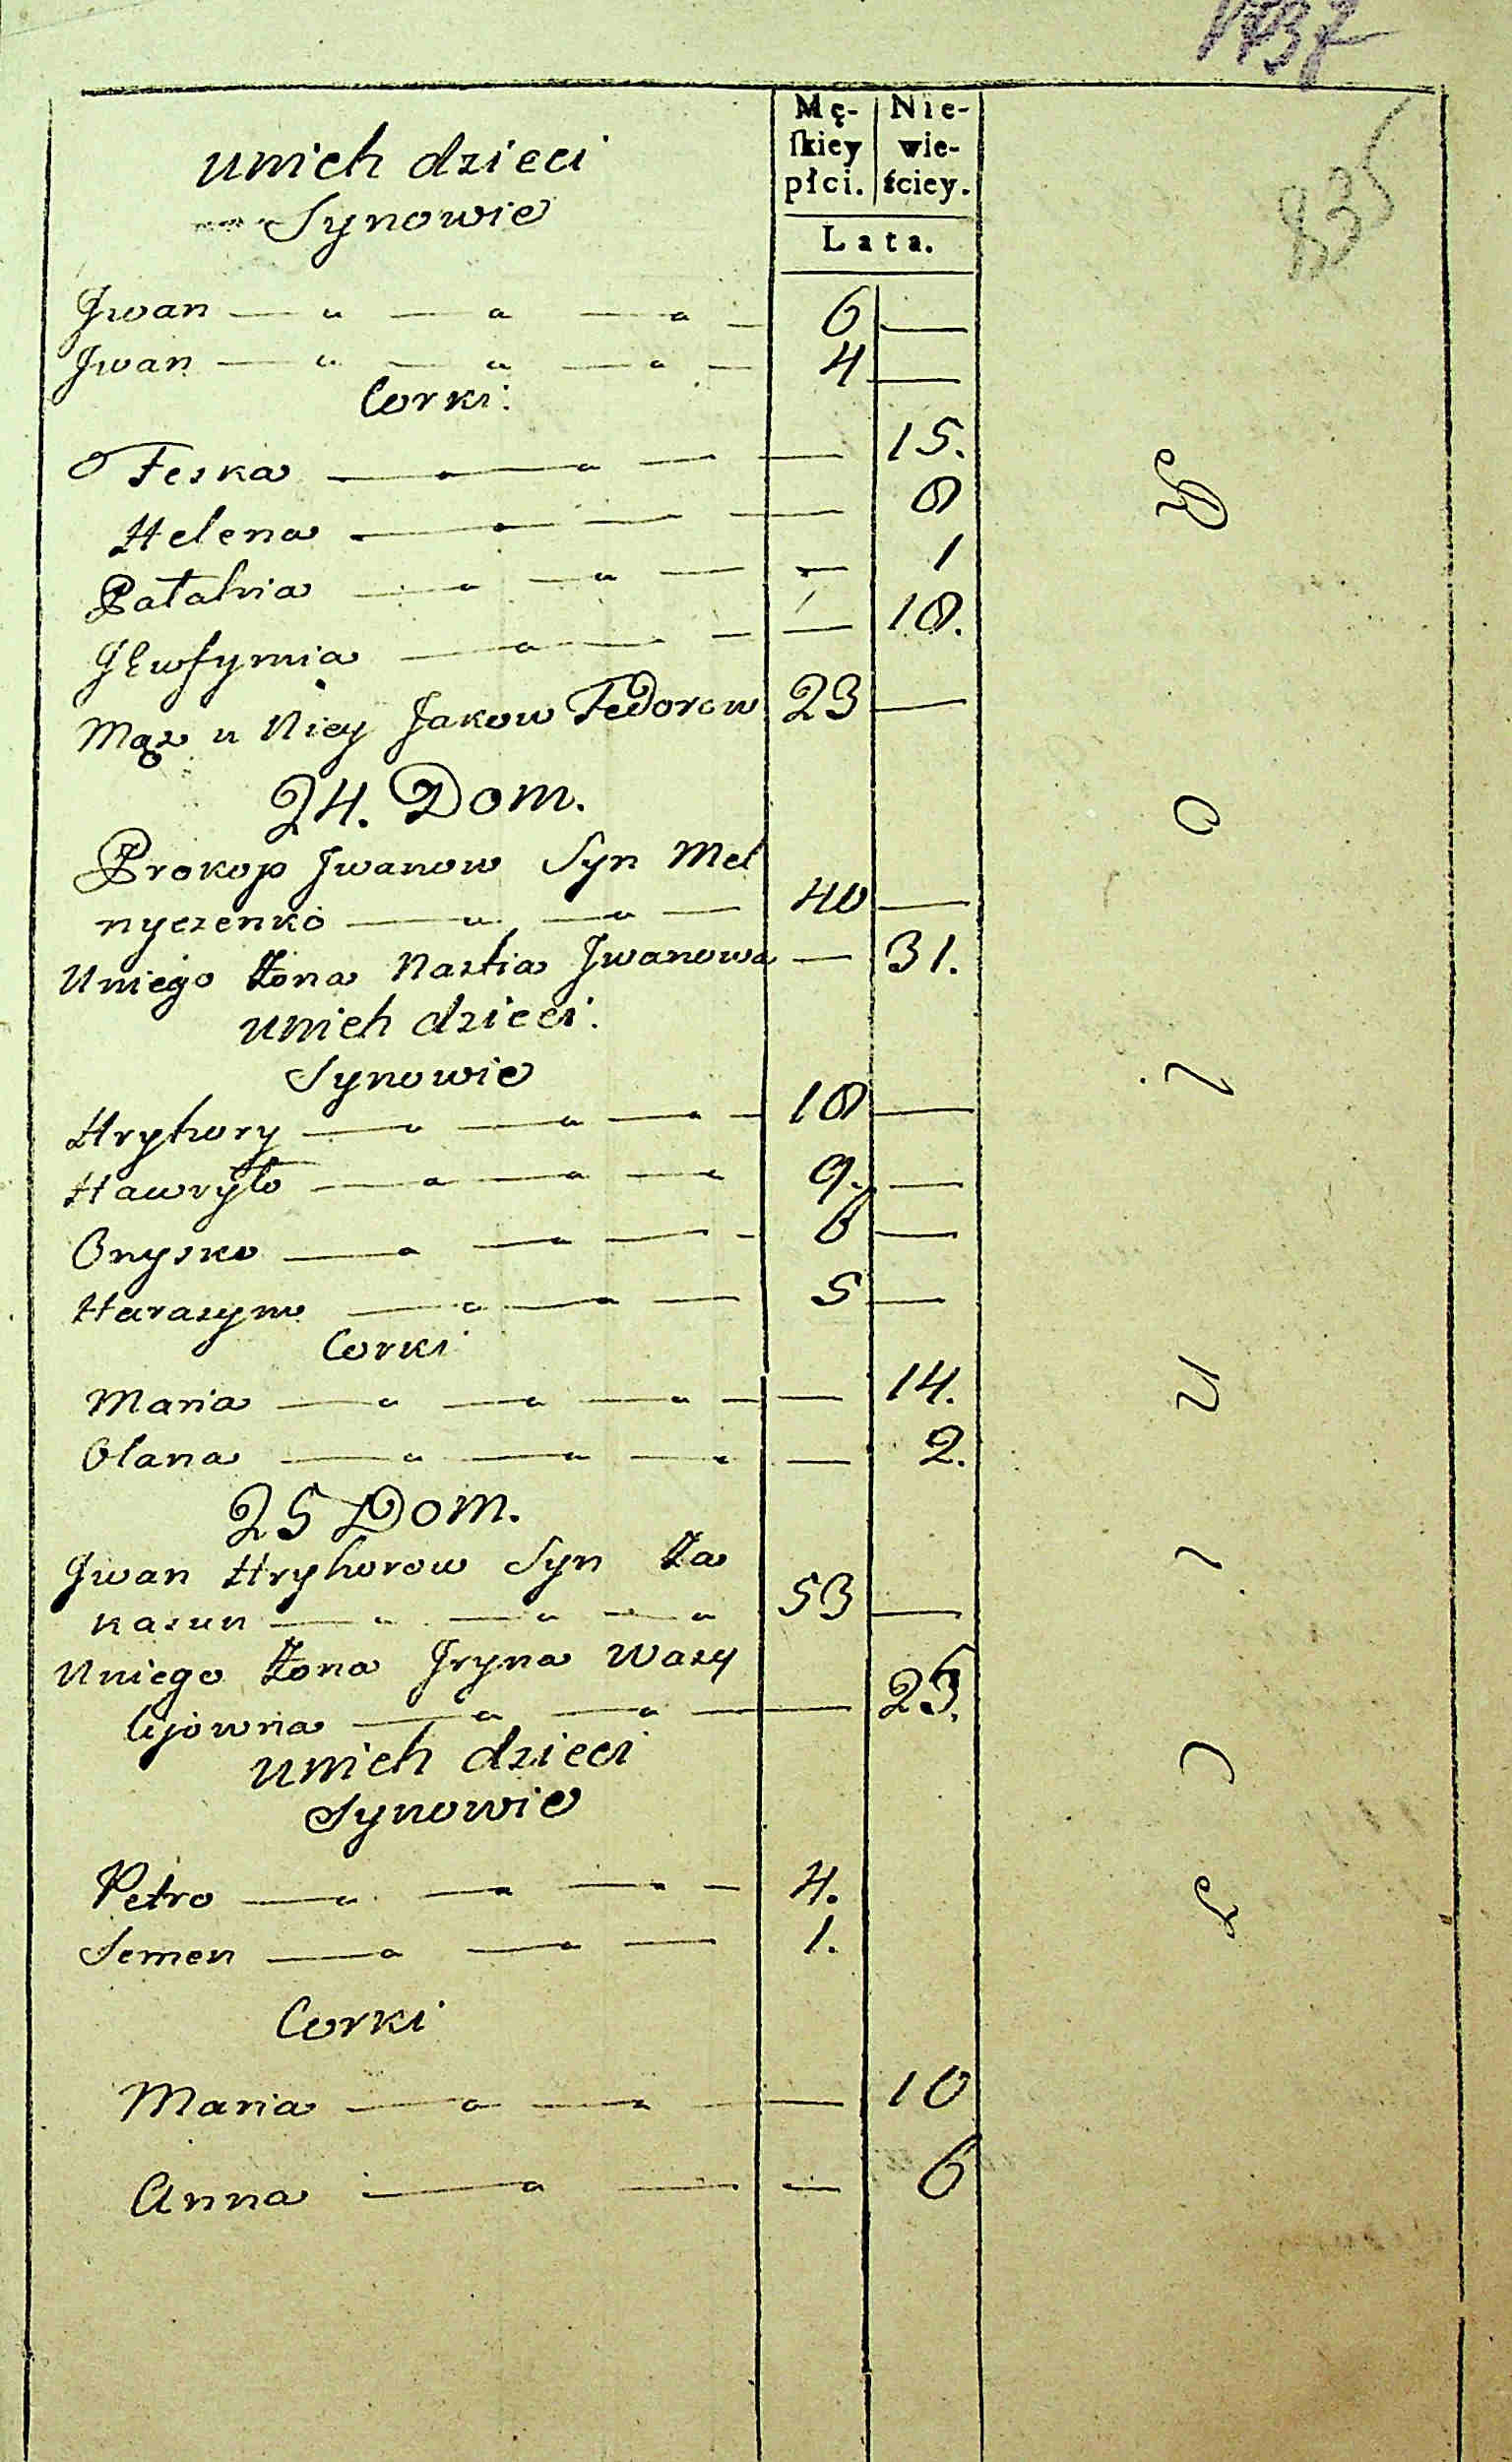 1737
835
Mę-
ſkiey
płci.
Nie-
wie-
ściey.
Lata.
unich dzieci
Synowie
Jwan 6
Jwan 4
Corki:
Feska 15.
Helena 8
Patahia 1
JEwfymia 18.
Mąz u Niey Jakow Fedorow 23
24. Dom.
Prokop Jwanow Syn Mel
nyczenko 40
Uniego Żona Nastia Jwanowa 31.
unich dzieci.
Synowie
Hryhory 18
Hawryło 9.
Onysko 6
Harasym 5
Corki
Maria 14.
Olana 2.
25 Dom.
Jwan Hryhorow Syn Ka
kasun 53
Uniego Żona Jryna Wasy
lijowna 25.
unich dzieci
Synowie
Petro 4.
Semen 1.
Corki
Maria 10
Anna 6